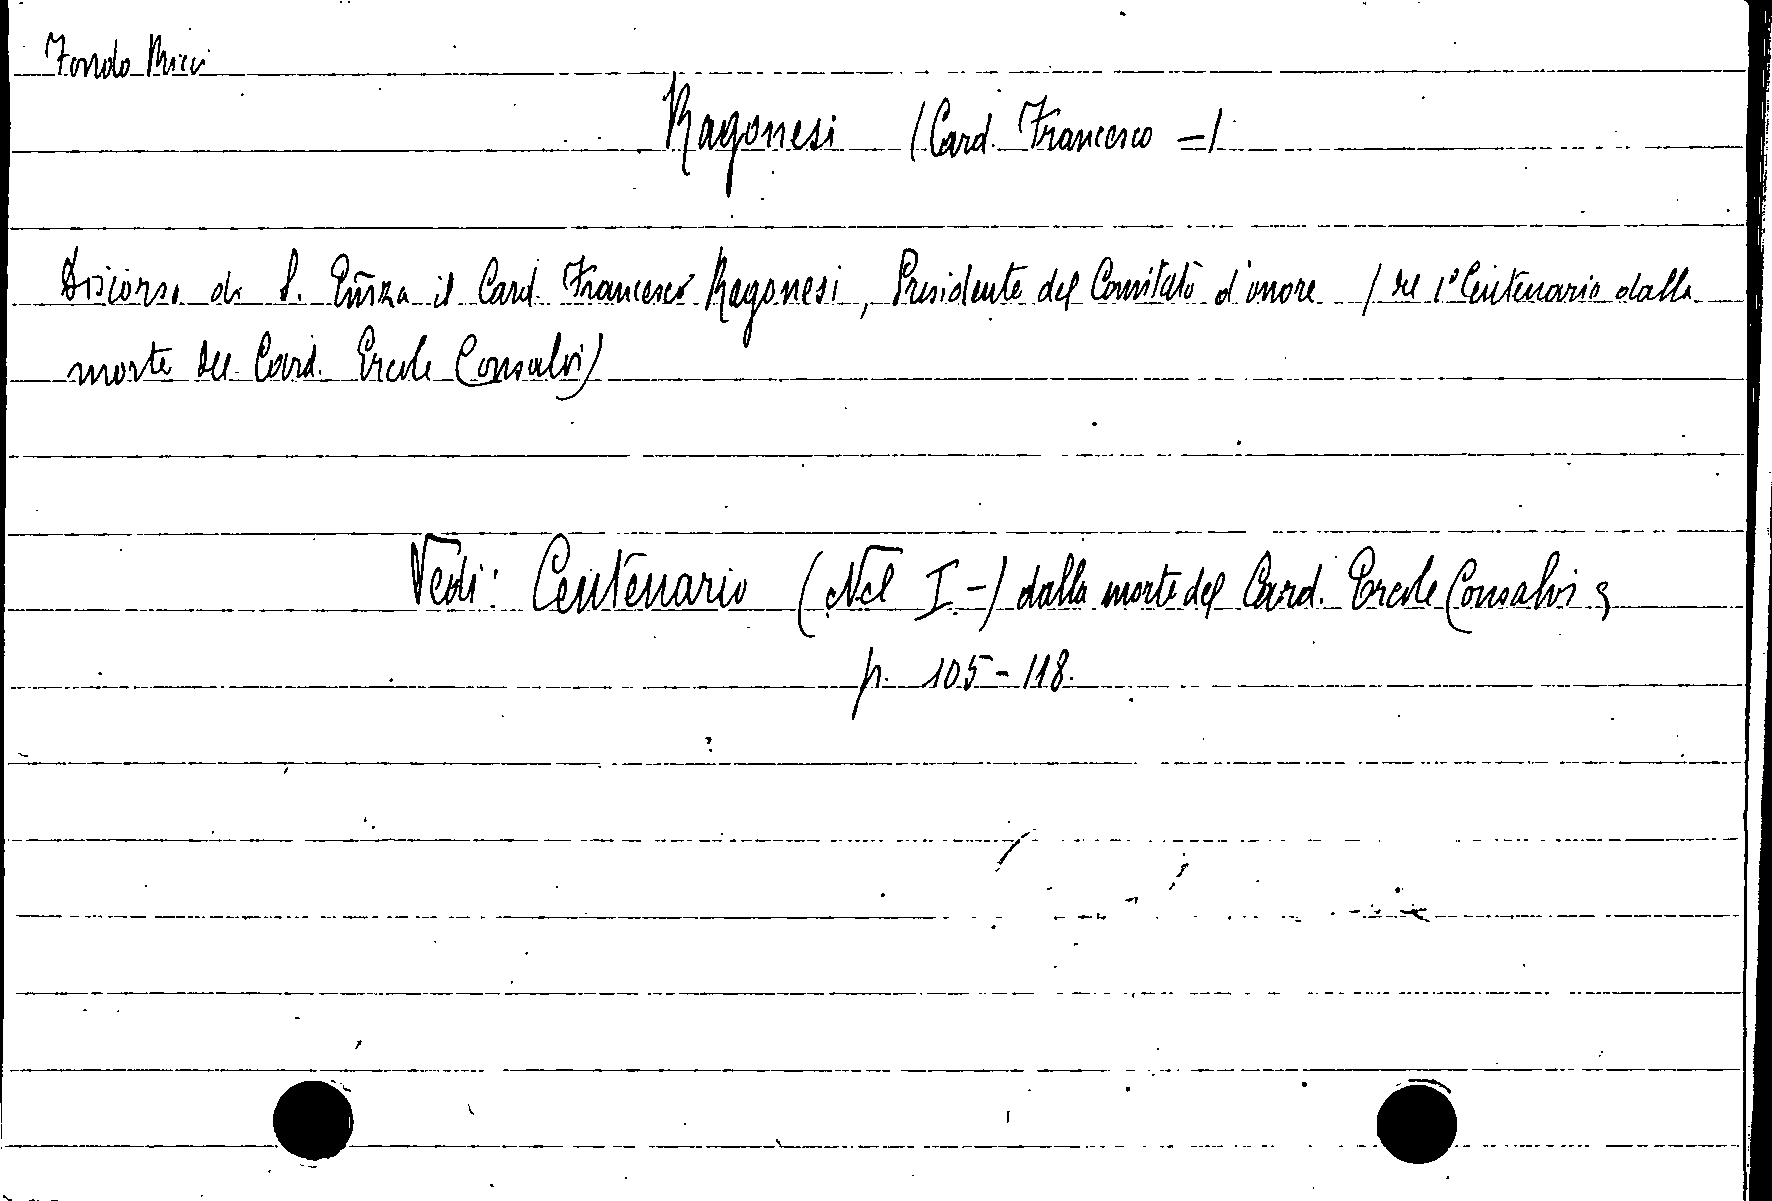 Fondo Ricci
Ragonesi (Card. Francesco =)
Discorso di S. Em̃za il Card. Francesco Ragonesi, Presidente del Comitato d'onore (del 1° Centenario dalla
morte del Card. Ercole Consalvi)
Vedi: Centenario (Nel I.-) dalla morte del Card. Ercole Consalvi,
p. 105-118.